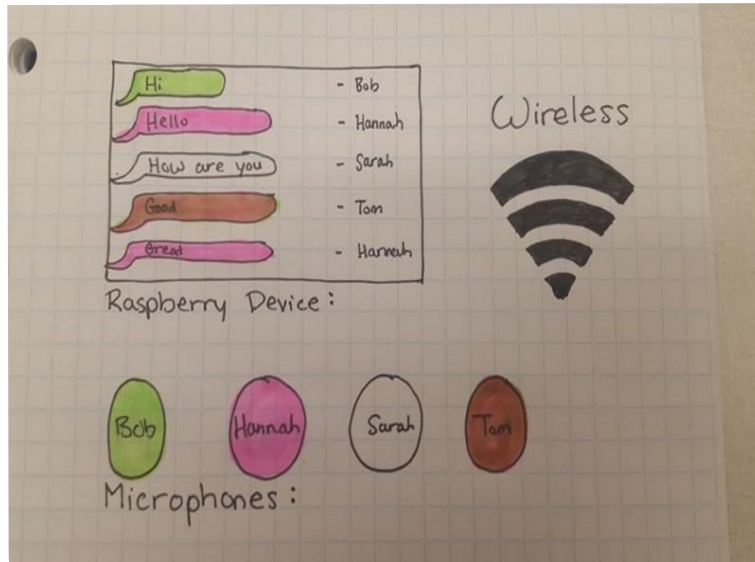 Hi - Bob
Hello - Hannah
How are you - Sarah
Good - Tom
Great - Hannah
Raspberry Device:
Wireless
Bob Hannah Sarah Tom
Microphones: